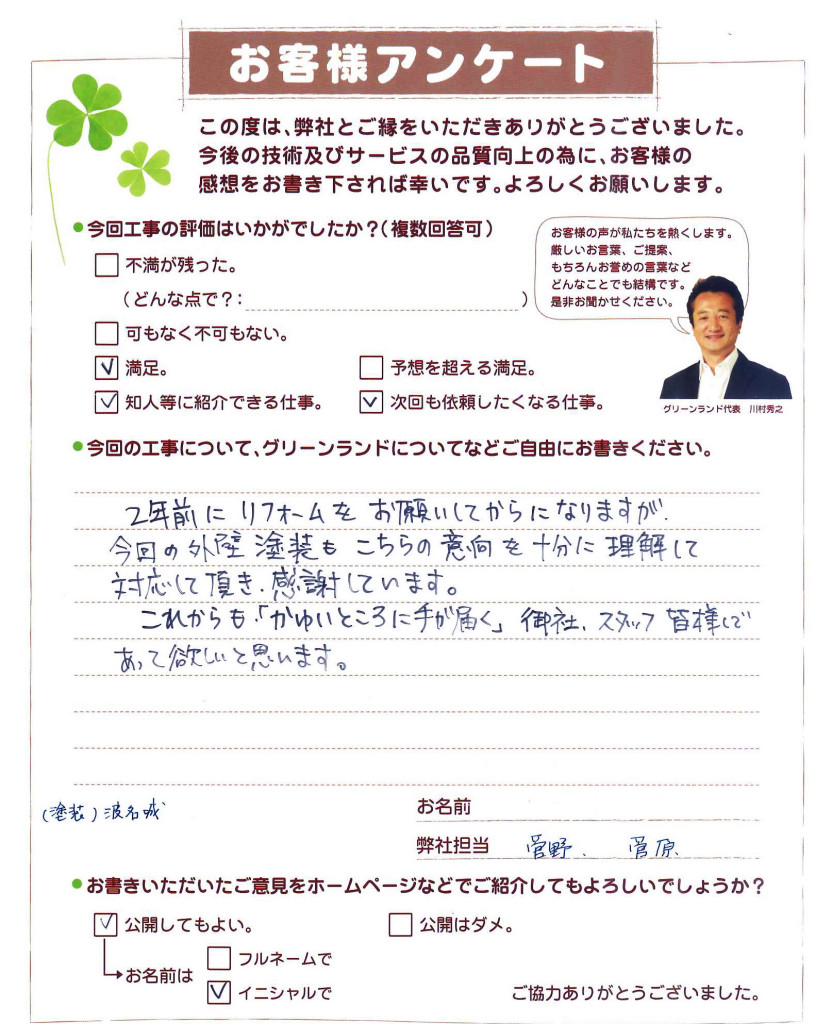 お客様アンケート
この度は、弊社とご縁をいただきありがとうございました。
今後の技術及びサービスの品質向上の為に、お客様の
感想をお書き下されば幸いです。よろしくお願いします。
今回工事の評価はいかがでしたか？（複数回答可）
不満が残った。
（どんな点で？： ）
可もなく不可もない。
満足。 予想を超える満足。
知人等に紹介できる仕事。 次回も依頼したくなる仕事。
お客様の声が私たちを熱くします。
厳しいお言葉、ご提案、
もちろんお誉めの言葉など
どんなことでも結構です。
是非お聞かせください。
グリーンランド代表 川村秀之
今回の工事について、グリーンランドについてなどご自由にお書きください。
2年前に リフォームを お願いしてからになりますが、
今回の外壁塗装も こちらの意向を十分に理解して
対応して頂き、感謝しています。
これからも「かゆいところに手が届く」御社、スタッフ皆様で
あって欲しいと思います。
(塗装) 波名城
お名前
弊社担当 菅野、菅原
お書きいただいたご意見をホームページなどでご紹介してもよろしいでしょうか？
公開してもよい。 公開はダメ。
お名前は
フルネームで
イニシャルで
ご協力ありがとうございました。